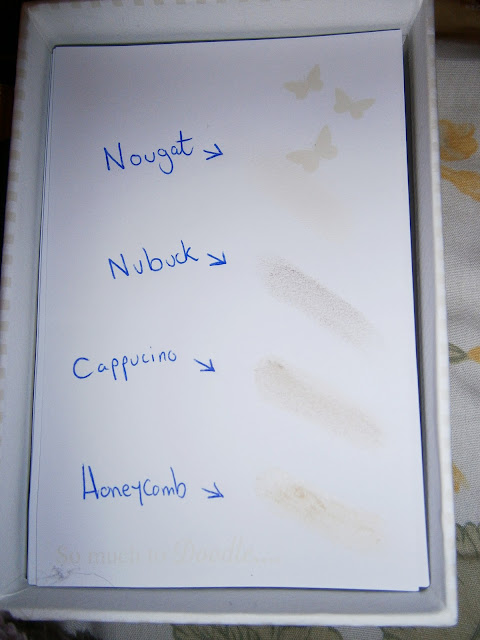 Nougat
Nubuck
Cappucino
Honeycomb
So much to Doodle....